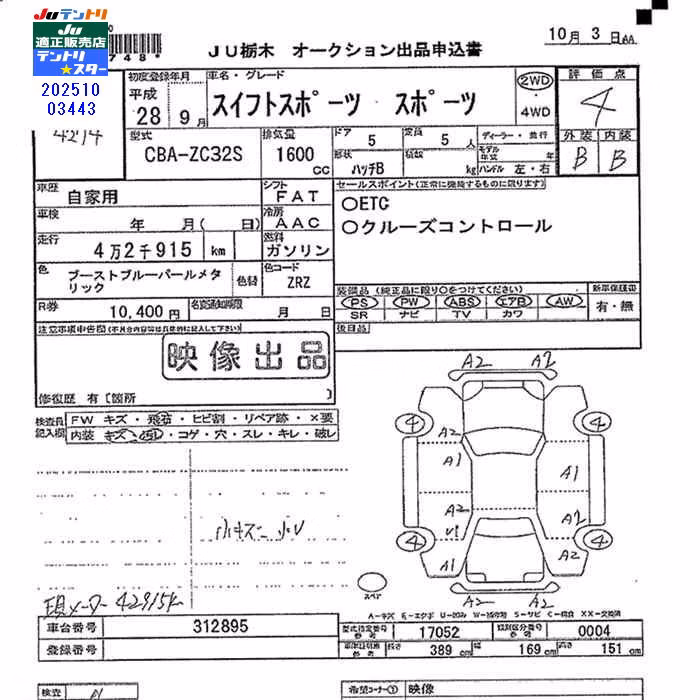 JUテントリ
JU
適正販売店
テントリ
★スター
202510
03443
748*
4214
JU栃木 オークション出品申込書
10月 3日
初度登録年月
平成
28 9月
車名・グレード
スイフトスポーツ スポーツ
2WD
4WD
評価点
4
型式
CBA-ZC32S
排気量
1600
cc
ドア 5
定員 5人
形状 ハッチB
積載 kg
ディーラー・並行
モデル年式 年
ハンドル 左・右
外装 内装
B B
車歴
自家用
シフト
FAT
セールスポイント(正常に機能するものに限ります)
車検
年 月( 日)
冷房
AAC
○ETC
走行
4万2千915 km
燃料
ガソリン
○クルーズコントロール
色
ブーストブルーパールメタリック
色替
色コード
ZRZ
装備品(純正品に限り○をつけてください)
新車保証書
PS PW ABS エアB AW
有・無
SR ナビ TV カワ
R券
10,400 円
名変通知期限
月 日
後日品
注意事項申告欄
映像出品
修復歴 有〔箇所 〕
検査員記入欄
FW キズ・飛石・ヒビ割・リペア跡・×要
内装 キズ・汚れ・コゲ・穴・スレ・キレ・破レ
A2 A2
4 4
A2
A1 A1
A2 A2
4 A1 A2 4
A2 A2
小キズ
スペア
現メーター 42915k
車台番号
312895
型式指定番号
参考
17052
類別区分番号
参考
0004
登録番号
長さ
389 cm
幅
169 cm
高さ
151 cm
検査
希望コーナー①
映像